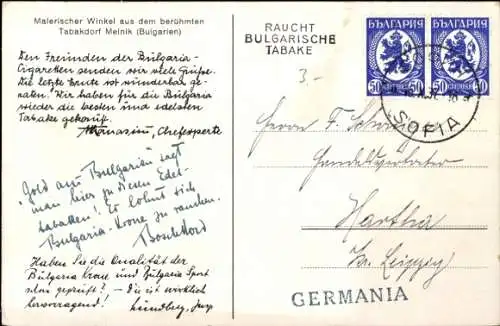 Malerischer Winkel aus dem berühmten
Tabakdorf Melnik (Bulgarien)
Den Freunden der Bulgaria-
Cigaretten senden wir viele Grüsse.
Die letzte Ernte ist wunderbar ge-
raten. Wir haben für die Bulgaria
wieder die besten und edelsten
Tabake gekauft.
Athanasiu, Chefexperte
"Gold aus Bulgarien" sagt
man hier zu diesen Edel-
tabaken! Es lohnt sich
Bulgaria-Krone zu rauchen.
Haben Sie die Qualität der
Bulgaria Krone und Bulgaria Sport
schon geprüft? - die ist wirklich
hervorragend!
RAUCHT
BULGARISCHE
TABAKE
3.-
БЪЛГАРИЯ БЪЛГАРИЯ
50 50 50 50
SOFIA
Herrn F.
Handelsvertreter
Hartha
Kr. Leipzig
GERMANIA